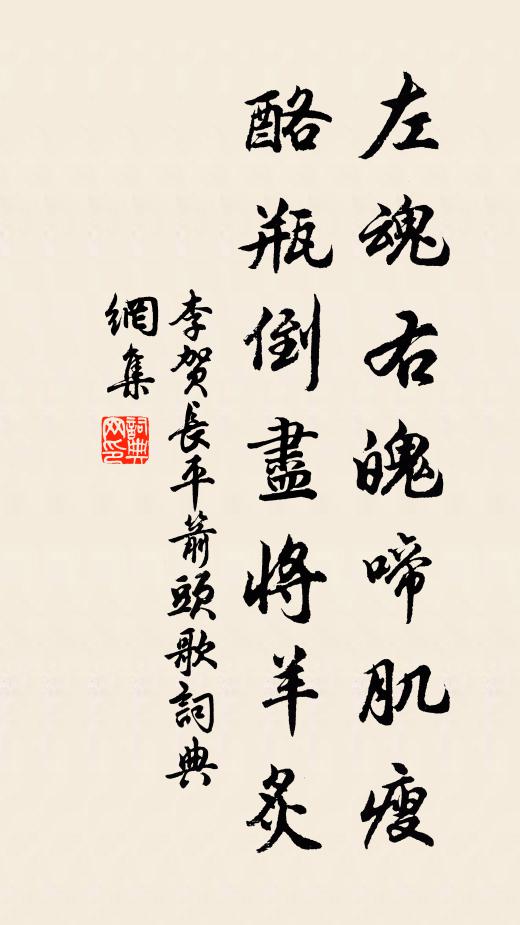 左魂右魄啼肌瘦
酪瓶倒盡將羊炙
李賀長平箭頭歌詞典
網集
詞典網印